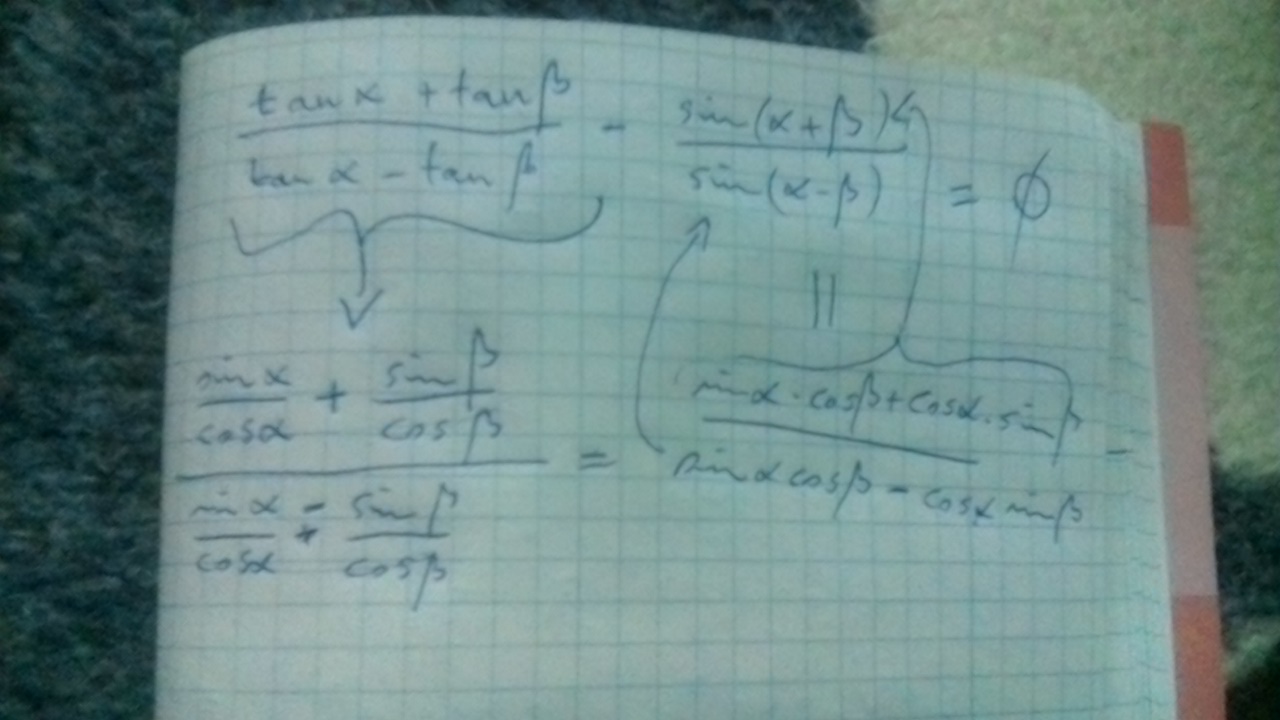 tanα + tanβ / tanα - tanβ - sin(α+β) / sin(α-β) = ϕ
||
sinα/cosα + sinβ/cosβ / sinα/cosα - sinβ/cosβ = sinα·cosβ+cosα·sinβ / sinαcosβ - cosαsinβ -